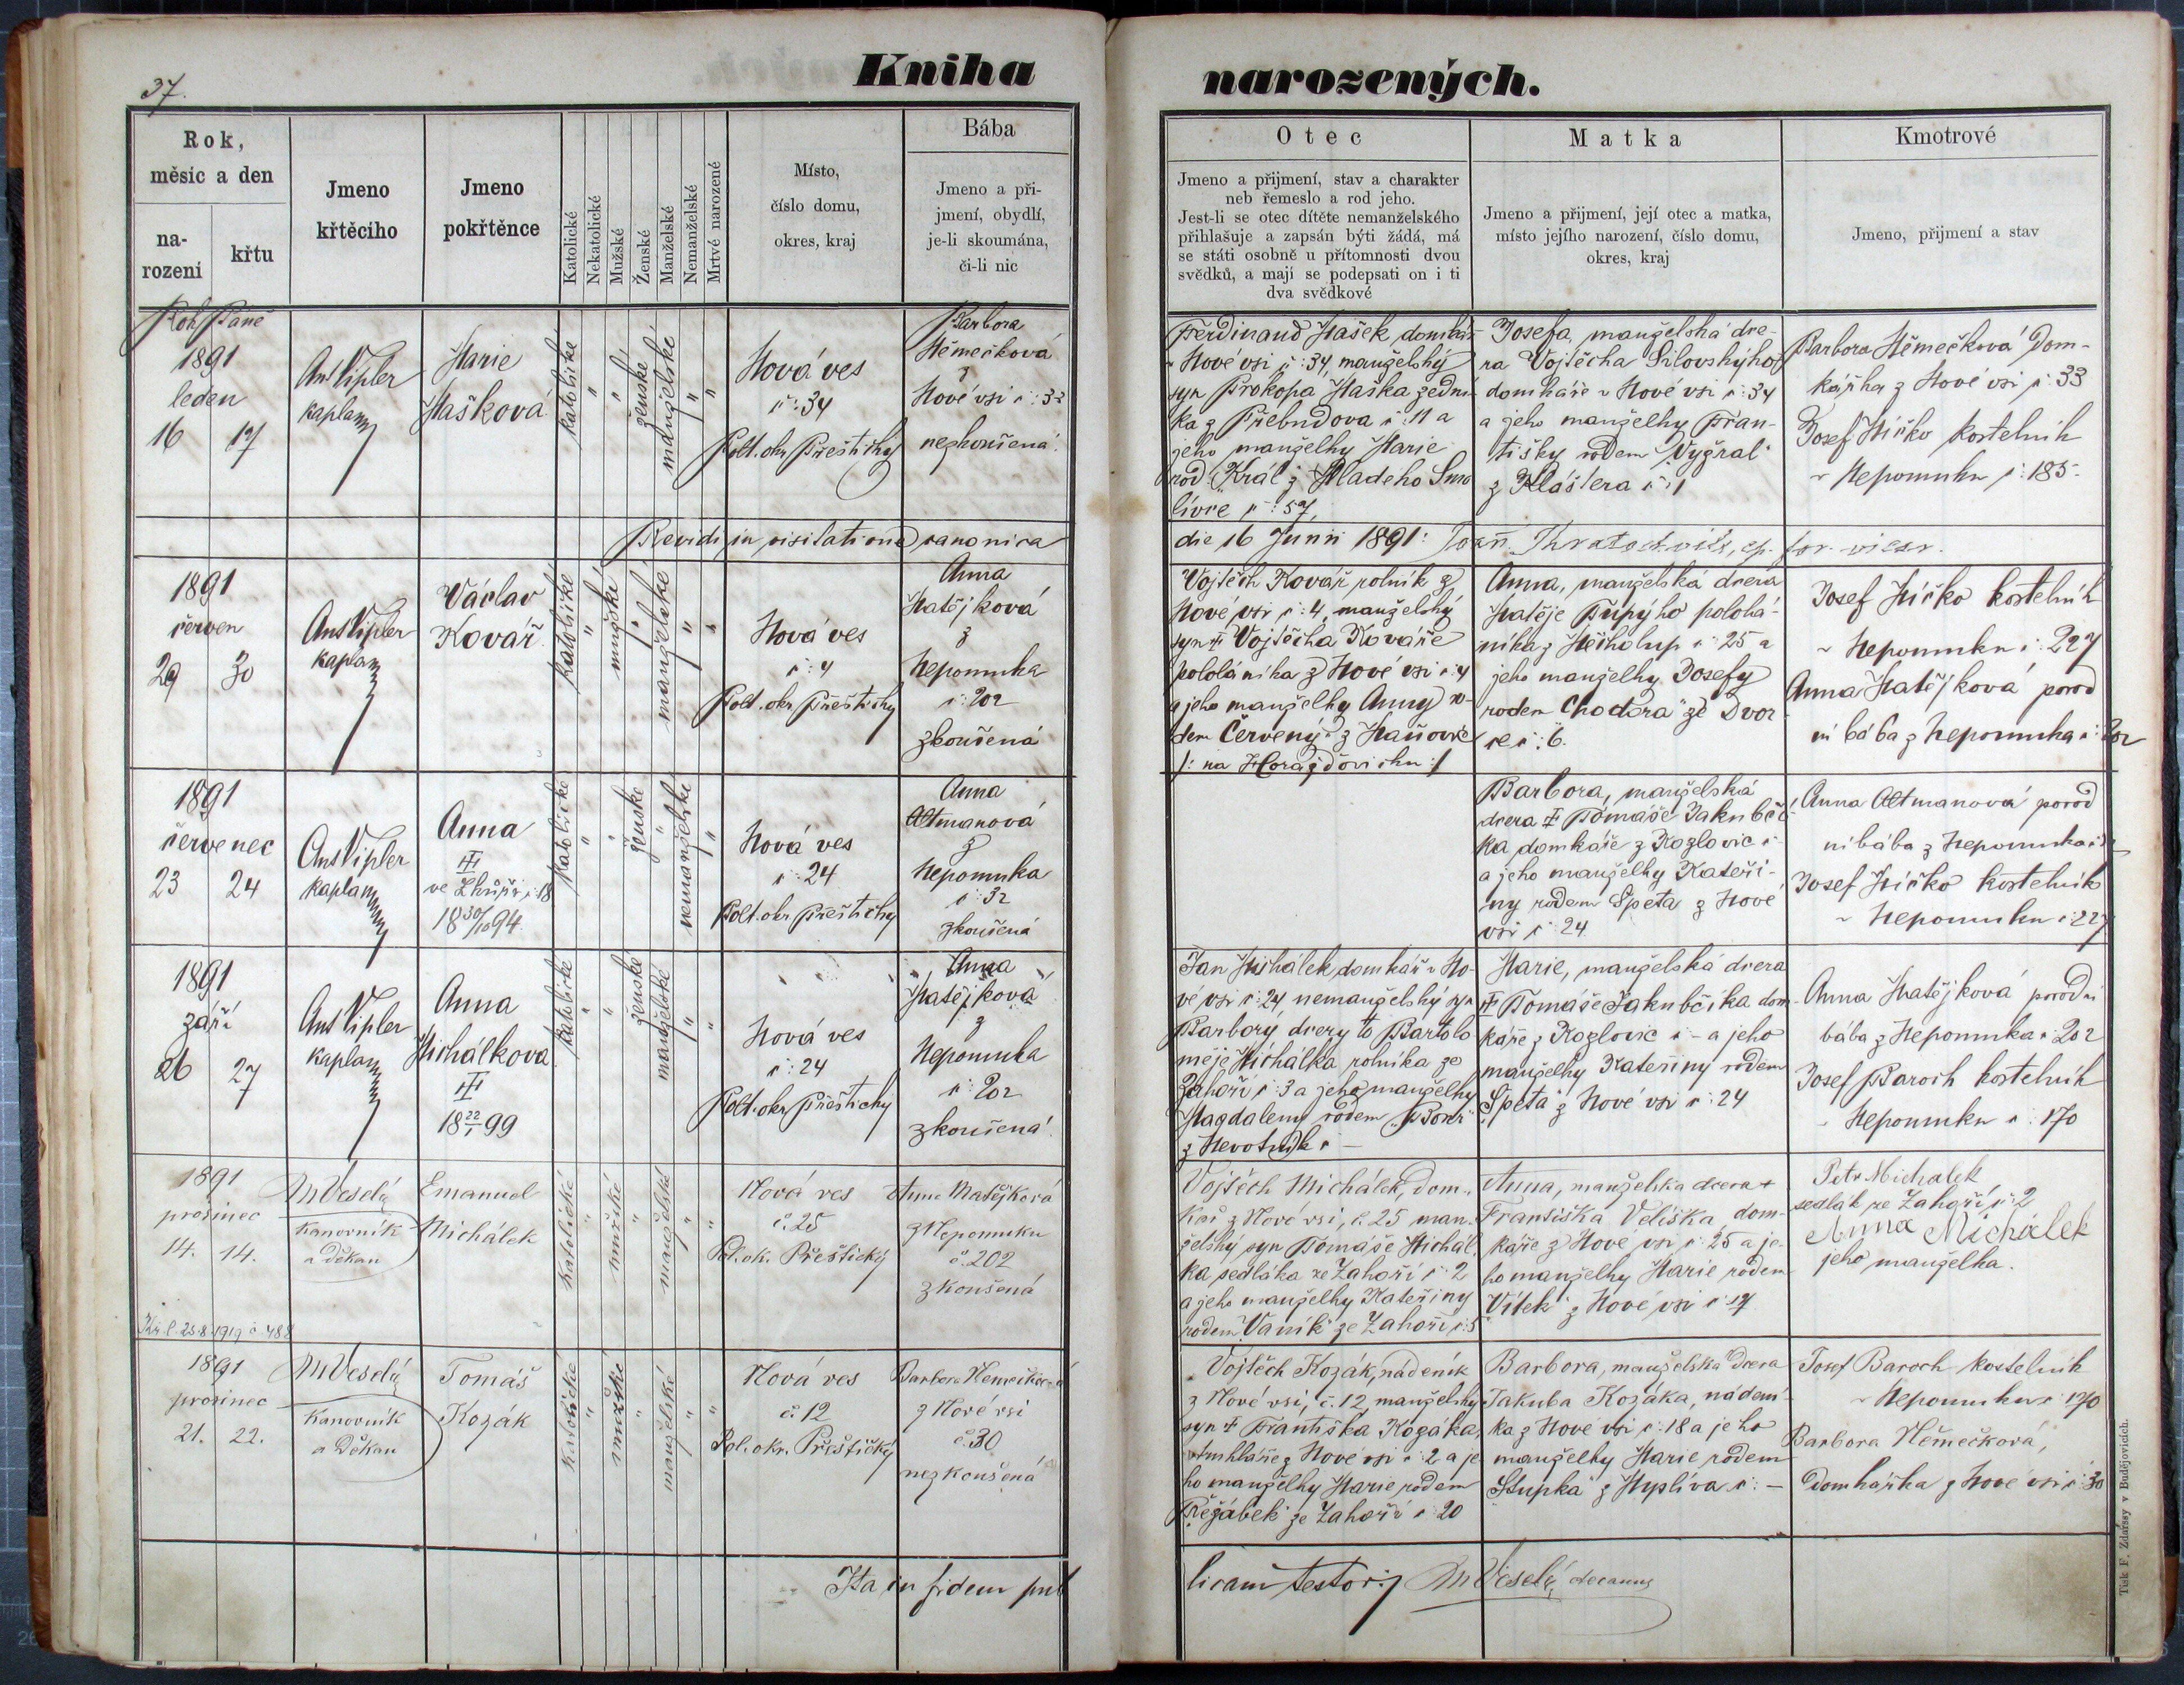 37.
Kniha narozených.
Rok,
měsic a den
na-
rození
křtu
Jmeno
křtěcího
Jmeno
pokřtěnce
Katolické
Nekatolické
Mužské
Ženské
Manželské
Nemanželské
Mrtvé narozené
Místo,
číslo domu,
okres, kraj
Bába
Jmeno a při-
jmení, obydlí,
je-li skoumána,
či-li nic
Otec
Jmeno a přijmení, stav a charakter
neb řemeslo a rod jeho.
Jest-li se otec dítěte nemanželského
přihlašuje a zapsán býti žádá, má
se státi osobně u přítomnosti dvou
svědků, a mají se podepsati on i ti
dva svědkové
Matka
Jmeno a přijmení, její otec a matka,
místo jejího narození, číslo domu,
okres, kraj
Kmotrové
Jmeno, přijmení a stav
Roku Páně
1891
leden
16 17
Ant Vipler
kaplan
Marie
Hašková
katolické
"
"
ženské
manželské
"
"
Nová ves
č: 34
Polt. okr. Přeštický
Barbora
Němečková
z
Nové vsi č: 33
nezkoušená
Ferdinand Hašek domkář
v Nové vsi č: 34, manželský
syn Prokopa Haška zední-
ka z Přebudova č: 11 a
jeho manželky Marie
rod. "Král" z Mladého Smo
livce č: 57,
Josefa, manželská dce-
ra Vojtěcha Silovskýho,
domkáře v Nové vsi č: 34
a jeho manželky Fran-
tišky rodem "Vyžral"
z Kláštera č: 1
Barbora Němečková Dom-
kářka z Nové vsi č: 33
Josef Mičko kostelník
v Nepomuku č: 185.
Revidi in visitatione canonica
die 16 Junii 1891: Joañ. Kratochvíl, ep. for. vicar.
1891
červen
29 30
Ant Vipler
kaplan
Václav
Kovář
katolické
"
mužské
"
manželské
"
"
Nová ves
č: 4
Polt. okr. Přeštický
Anna
Matějková
z
Nepomuka
č: 202
zkoušená
Vojtěch Kovář rolník z
Nové vsi č: 4, manželský
syn † Vojtěcha Kováře
pololáníka z Nové vsi č: 4
a jeho manželky Anny ro-
dem "Červený" z Maňovic
/: na Horažďovicku :/
Anna, manželská dcera
Matěje Pipýho pololá-
níka z Měcholup č: 25 a
jeho manželky Josefy
rodem "Chodora" ze Dvor
ce č: 6.
Josef Mičko kostelník
v Nepomuku č: 227
Anna Matějková porod
ní bába z Nepomuka č: 202
1891
červenec
23 24
Ant Vipler
kaplan
Anna
†
ve Zhůři č: 18
18 30/10 94.
katolické
"
"
ženské
"
nemanželské
"
Nová ves
č: 24
Polt. okr. Přeštický
Anna
Altmanová
z
Nepomuka
č: 32
zkoušená
Barbora, manželská
dcera † Tomáše Jakubčí-
ka domkáře z Kozlovic č
a jeho manželky Kateři-
ny rodem Špeta z Nové
vsi č: 24
Anna Altmanová porod
ní bába z Nepomuka
Josef Mičko kostelník
v Nepomuku č: 227
1891
září
26 27
Ant Vipler
kaplan
Anna
Michálkova
†
18 22/1 99
katolické
"
"
ženské
manželské
"
"
Nová ves
č: 24
Polt. okr. Přeštický
Anna
Matějková
z
Nepomuka
č: 202
zkoušená
Jan Michálek, domkář v No-
vé vsi č: 24 nemanželský syn
Barbory, dcery to Bartolo
měje Michálka rolníka ze
Zahoří č: 3 a jeho manželky
Magdaleny rodem
z Nevotník č –
Marie, manželská dcera
† Tomáše Jakubčíka dom-
káře z Kozlovic č – a jeho
manželky Kateřiny rodem
"Špeta" z Nové vsi č: 24
Anna Matějková porodní
bába z Nepomuka č: 202
Josef Baroch kostelník
v Nepomuku č: 170
1891
prosinec
14. 14.
M Veselý
Kanovník
a Děkan
Emanuel
Michálek
katolické
"
mužské
"
manželské
"
"
Nová ves
č. 25
Pol. ok. Přeštický
Anna Matějková
z Nepomuku
č. 202
zkoušená
Vojtěch Michálek, dom-
kář z Nové vsi, č. 25 man-
želský syn Tomáše Michál
ka sedláka ze Zahoří č: 2
a jeho manželky Kateřiny
rodem "Vaník" ze Zahoří č: 5
Anna, manželska dcera †
Františka Veliška, dom-
káře z Nové vsi č: 25 a je-
ho manželky Marie rodem
"Vítek" z Nové vsi č: 17
Petr Michalek
sedlák ze Zahoří č: 2
Anna Michálek
jeho manželka.
25.8.1919 č 488
1891
prosinec
21. 22.
M Veselý
Kanovník
a Děkan
Tomáš
Kozák
katolické
"
mužské
"
manželské
"
"
Nová ves
č. 12
Pol. okr. Přeštický
Barbora Němečková
z Nové vsi
č. 30
nezkoušená
Vojtěch Kozák, nádeník
z Nové vsi, č. 12, manželský
syn † Františka Kozáka,
truhláře z Nové vsi č: 2 a je
ho manželky Marie rodem
"Řežábek" ze Zahoří č: 20
Barbora, manželska dcera
Jakuba Kozáka, nádení-
ka z Nové vsi č: 18 a jeho
manželky Marie rodem
"Stupka" z Myslíva č: –
Josef Baroch kostelník
v Nepomuku č: 170
Barbora Němečková,
Domkářka z Nové vsi č: 30
Ita in fidem pub
licam testor: M Veselý decanus
Tisk F. Zdarssy v Budějovicích.